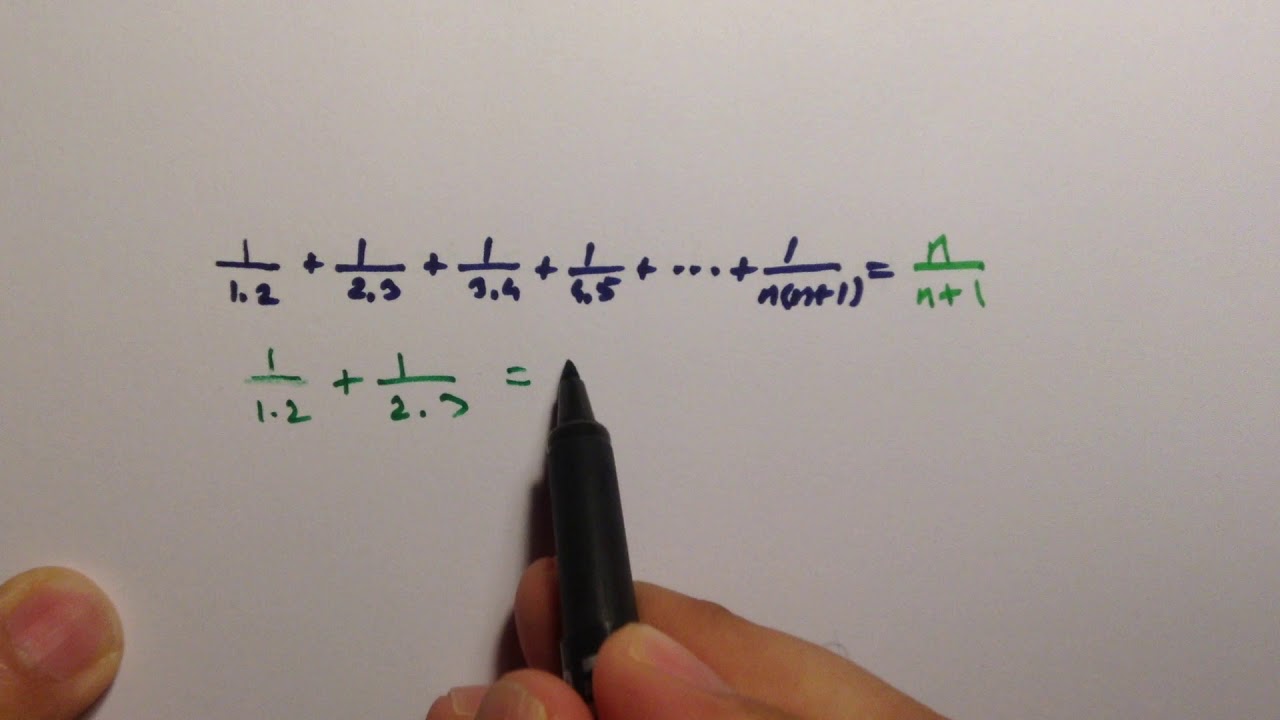 1/1.2 + 1/2.3 + 1/3.4 + 1/4.5 + ... + 1/n(n+1) = n/n+1
1/1.2 + 1/2.3 =